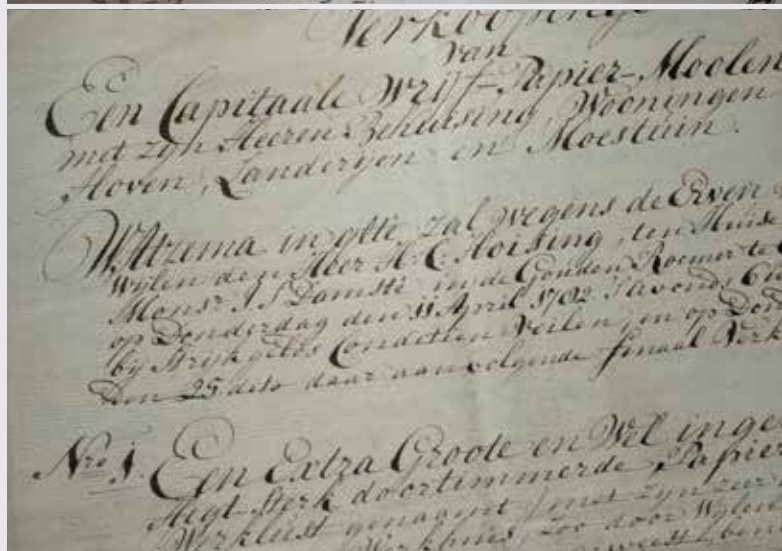 Verkoopinge
van
Een Capitaale Wriff-Papier-Moolen
met zyn Heeren Behuising, Wooningen
Hoven, Landeryen en Moestuin.
W. Atzema in qltt. zal wegens de Erven
Wylen den Heer H. C. Hoising, ten Huise
Monsr. J. S. Damsté in de Gouden Roemer te
op Donderdag den 11 April 1782 s'avonds 6
by Strykgelds Conditien Veilen, en op Don
den 25 dito daar aanvolgende finaal Verk
Nro 1. Een Extra Groote en Wel inge
Hegt-Sterk doortimmerde Papier
Werklust genaamt, met zyn zeer
Werkhuis, zoo door Wylen
geweest